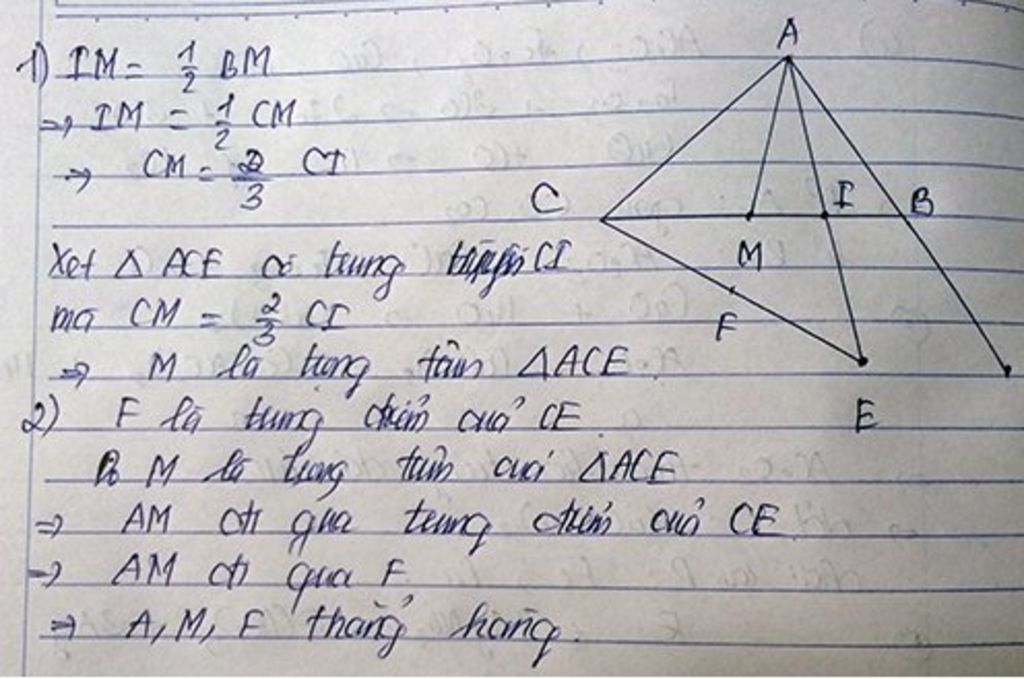 1) IM = 1/2 BM
=> IM = 1/2 CM
=> CM = 2/3 CI
Xét △ ACE có trung tuyến CI
mà CM = 2/3 CI
=> M là trọng tâm △ACE.
2) F là trung điểm của CE.
M là trọng tâm của △ACE
=> AM đi qua trung điểm của CE
=> AM đi qua F
=> A, M, F thẳng hàng.
A
C
I
B
M
F
E